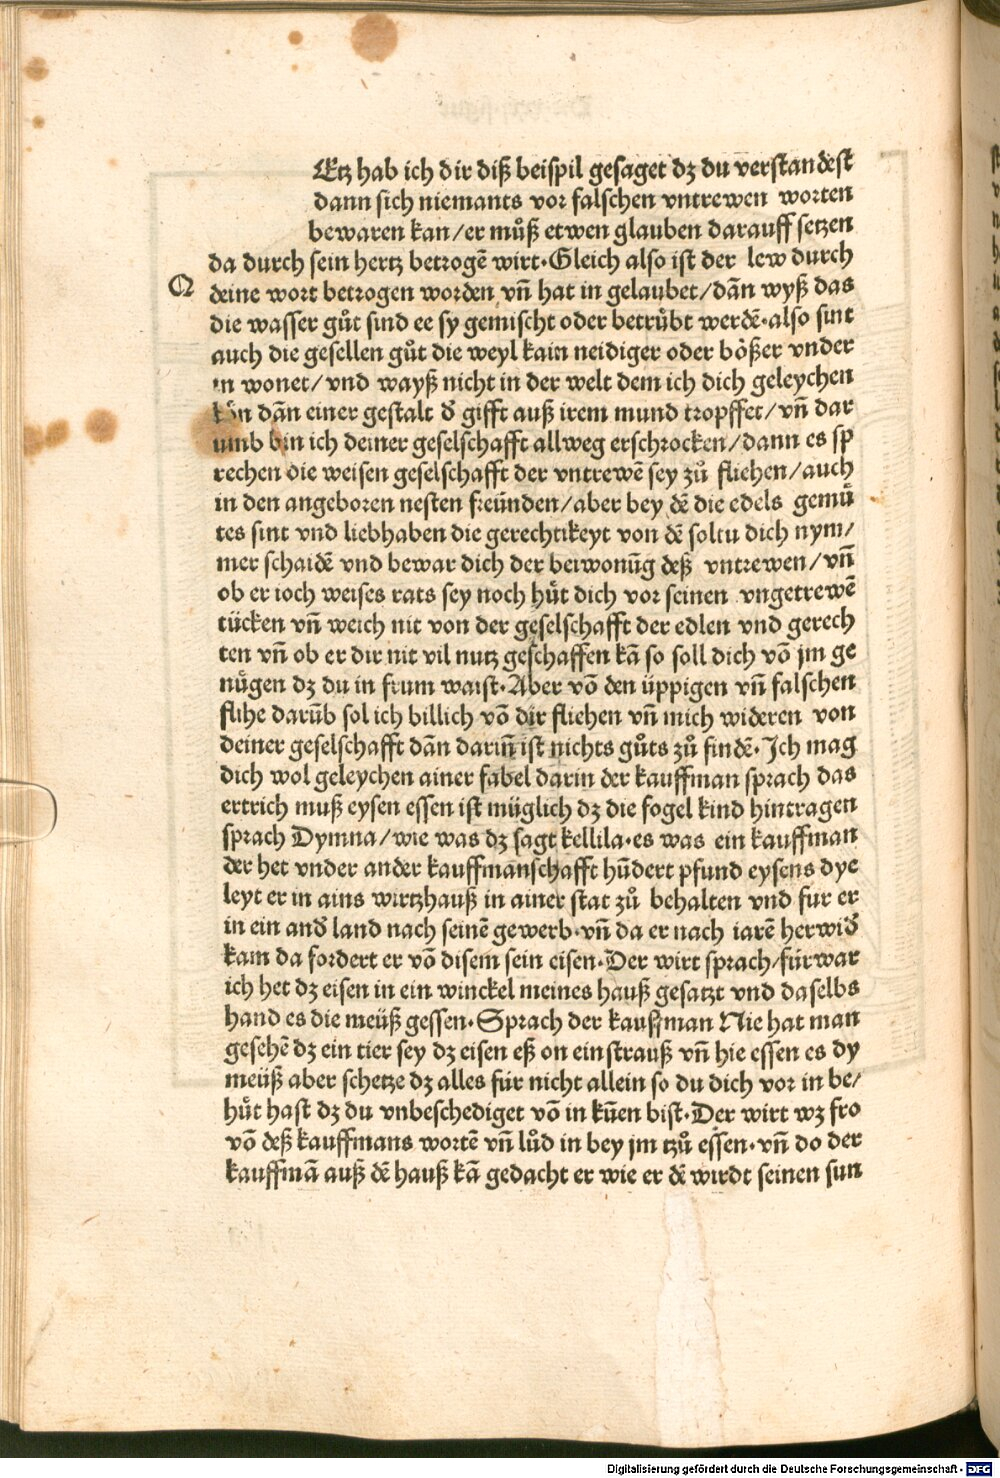 Etz hab ich dir diß beispil gesaget dz du verstandest
dann sich niemants vor falschen vntrewen worten
bewaren kan/er můß etwen glauben darauff setzen
da durch sein hertz betrogē wirt·Gleich also ist der lew durch
Q deine wort betrogen worden vn̄ hat in gelaubet/dān wyß das
die wasser gůt sind ee sy gemischt oder betrůbt werdē·also sint
auch die gesellen gůt die weyl kain neidiger oder bößer vnder
in wonet/vnd wayß nicht in der welt dem ich dich geleychen
kön dān einer gestalt d̕ gifft auß irem mund tropffet/vn̄ dar
umb bin ich deiner geselschafft allweg erschrocken/dann es sp
rechen die weisen geselschafft der vntrewē sey zů fliehen/auch
in den angeboren nesten freünden/aber bey dē die edels gemů
tes sint vnd liebhaben die gerechtikeyt von dē soltu dich nym/
mer schaidē vnd bewar dich der beiwonūg deß vntrewen/vn̄
ob er ioch weises rats sey noch hůt dich vor seinen vngetrewē
tücken vn̄ weich nit von der geselschafft der edlen vnd gerech
ten vn̄ ob er dir nit vil nutz geschaffen kā so soll dich vō jm ge
nůgen dz du in frum waist·Aber vō den üppigen vn̄ falschen
flihe darūb sol ich billich vō dir fliehen vn̄ mich wideren von
deiner geselschafft dān darin̄ ist nichts gůts zů findē·Jch mag
dich wol geleychen ainer fabel darin der kauffman sprach das
ertrich muß eysen essen ist müglich dz die fogel kind hintragen
sprach Dymna/wie was dz sagt kellila·es was ein kauffman
der het vnder ander kauffmanschafft hūdert pfund eysens dye
leyt er in ains wirtzhauß in ainer stat zů behalten vnd fur er
in ein and̕ land nach seinē gewerb·vn̄ da er nach iarē herwid̕
kam da fordert er vō disem sein eisen·Der wirt sprach/fürwar
ich het dz eisen in ein winckel meines hauß gesatzt vnd daselbs
hand es die meüß gessen·Sprach der kauffman Nie hat man
gesehē dz ein tier sey dz eisen eß on ein strauß vn̄ hie essen es dy
meüß aber schetze dz alles für nicht allein so du dich vor in be/
hůt hast dz du vnbeschediget vō in kūen bist·Der wirt wz fro
vō deß kauffmans wortē vn̄ lůd in bey jm tzů essen·vn̄ do der
kauffmā auß dē hauß kā gedacht er wie er dē wirdt seinen sun
Digitalisierung gefördert durch die Deutsche Forschungsgemeinschaft - DFG